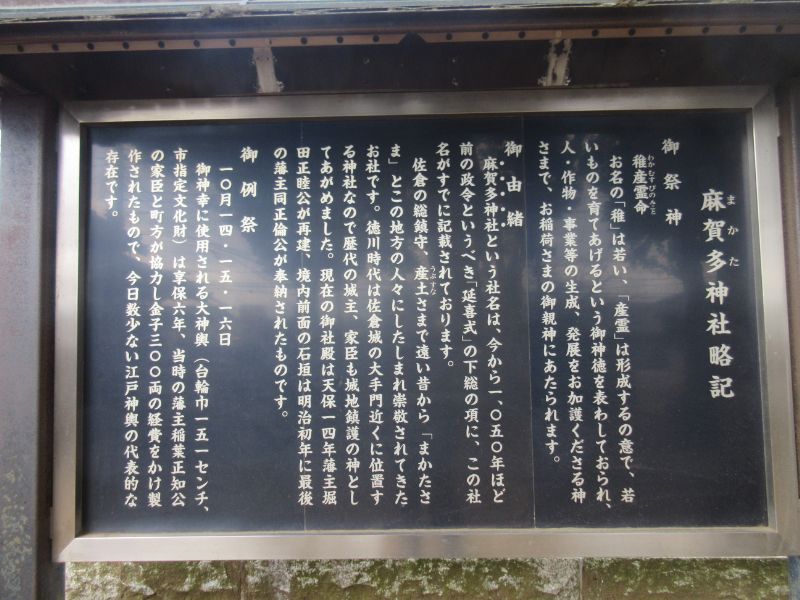 麻賀多神社略記
まかた
御祭神
稚産霊命
わかむすびのみこと
お名の「稚」は若い、「産霊」は形成するの意で、若
いものを育てあげるという御神徳を表わしておられ、
人・作物・事業等の生成、発展をお加護くださる神
さまで、お稲荷さまの御親神にあたられます。
御由緒
麻賀多神社という社名は、今から一、〇五〇年ほど
前の政令というべき「延喜式」の下総の項に、この社
名がすでに記載されております。
佐倉の総鎮守、産土さまで遠い昔から「まかたさ
うぶすな
ま」とこの地方の人々にしたしまれ崇敬されてきた
お社です。徳川時代は佐倉城の大手門近くに位置す
る神社なので歴代の城主、家臣も城地鎮護の神とし
てあがめました。現在の御社殿は天保一四年藩主堀
田正睦公が再建、境内前面の石垣は明治初年に最後
の藩主同正倫公が奉納されたものです。
御例祭
一〇月一四・一五・一六日
御神幸に使用される大神輿(台輪巾一五一センチ、
市指定文化財)は享保六年、当時の藩主稲葉正知公
の家臣と町方が協力し金子三〇〇両の経費をかけ製
作されたもので、今日数少ない江戸神輿の代表的な
存在です。